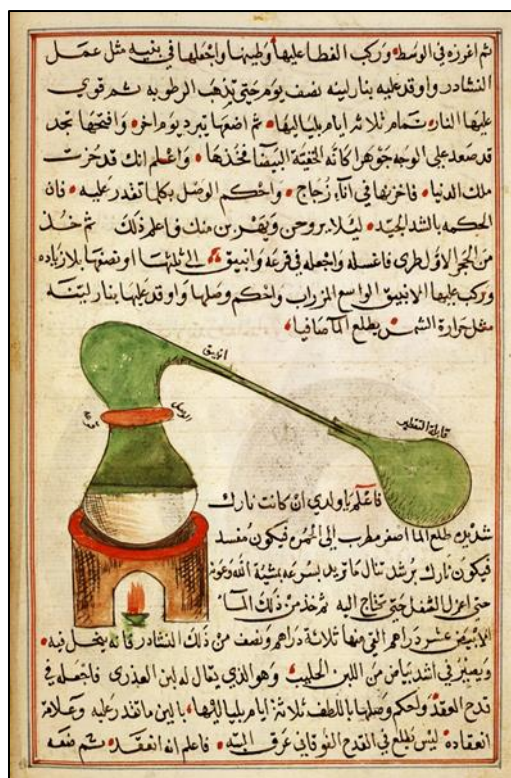 ثم اغرزه في الوسط وركب الغطا عليها وطينها واجعلها في بنيه مثل عمل
النشادر واوقد عليه بنار لينه نصف يوم حتى تذهب الرطوبه ثم قوي
عليها النار تمام ثلاثه ايام بلياليها ثم اضعها تبرد يوم اخر وافتحها تجد
قد صعد على الوجه جوهرا كانه البيضا فخذها واعلم انك قد حزت
ملك الدنيا فاخزنها في اناء زجاج واحكم الوصل بكلما تقدر عليه فان
الحكمه بالشد الجيد ليلا يروحن ويفرين منك فاعلم ذلك ثم خذ
من الحجر الاول طري فاغسله واجعله في قرعه وانبيق الى ثلثها او نصفها بلا زياده
وركب عليها الانبيق الواسع المزراب واحكم وصلها واوقد عليها بنار لينه
مثل حرارة الشمس يطلع الما صافيا
انبيق
قابلة التقطير
الوصل
فاعلم يا ولدي ان كانت نارك
شديده طلع الما اصفر مطرب الى الحمره فيكون مفسد
فيكون نارك برشد تنال ما تريد بسرعه بمشية الله وعونه
حتى اعزل الثفل حتى تحتاج اليه ثم خذ من ذلك الماء
الابيض عشر دراهم القي فيها ثلاثة دراهم ونصف من ذلك النشادر فانه ينحل فيه
ويصير في اشد بياض من اللبن الحليب وهو الذي يقال له لبن العذرى فاجعله في
قدح العقد واحكم وصلها باللطف ثلاثة ايام بلياليها بالين ما تقدر عليه وعلامة
انعقاده ليس يطلع في القدح الفوقاني عرق البته فاعلم انه انعقد ثم ضعه